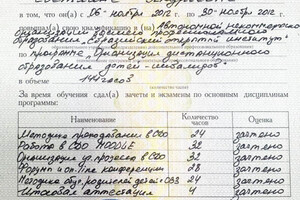 в том, что он(а) с 26 ноября 2012 г. по 30 ноября 2012
прошел(а) обучение в (на) Автономной некоммерческой
организации высшего профессионального
образования "Евразийский открытый институт"
по программе "Организация дистанционного
образования детей-инвалидов"
в объеме 144 часов
За время обучения сдал(а) зачеты и экзамены по основным дисциплинам
программы:
Наименование Количество часов Оценка
Методика преподавания в СДО 24 зачтено
Работа в СДО MOODLE 32 зачтено
Организация уч. процесса в СДО 32 зачтено
Форумы и on-line конференции 28 зачтено
Методика обуч. родителей детей с ОВЗ 24 зачтено
Итоговая аттестация 4 зачтено